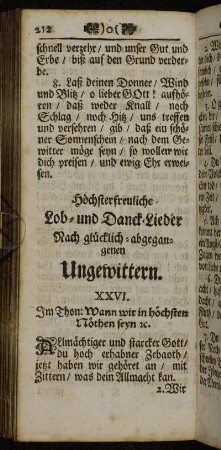 212
)o(
schnell verzehr / und unser Gut und
Erbe / biß auf den Grund verder-
be.
8. Laß deinen Donner / Wind
und Blitz / o lieber GOtt! aufhö-
ren / daß weder Knall / noch
Schlag / noch Hitz / uns treffen
und versehren / gib / daß ein schö-
ner Sonnenschein / nach dem Ge-
witter möge seyn / so wollen wir
dich preisen / und ewig Ehr erwei-
sen.
Höchsterfreuliche
Lob- und Danck-Lieder
Nach glücklich-abgegan-
genen
Ungewittern.
XXVI.
Im Thon: Wann wir in höchsten
Nöthen seyn ꝛc.
ALlmächtiger und starcker Gott /
du hoch erhabner Zebaoth /
jetzt haben wir gehöret an / mit
Zittern / was dein Allmacht kan.
2. Wir